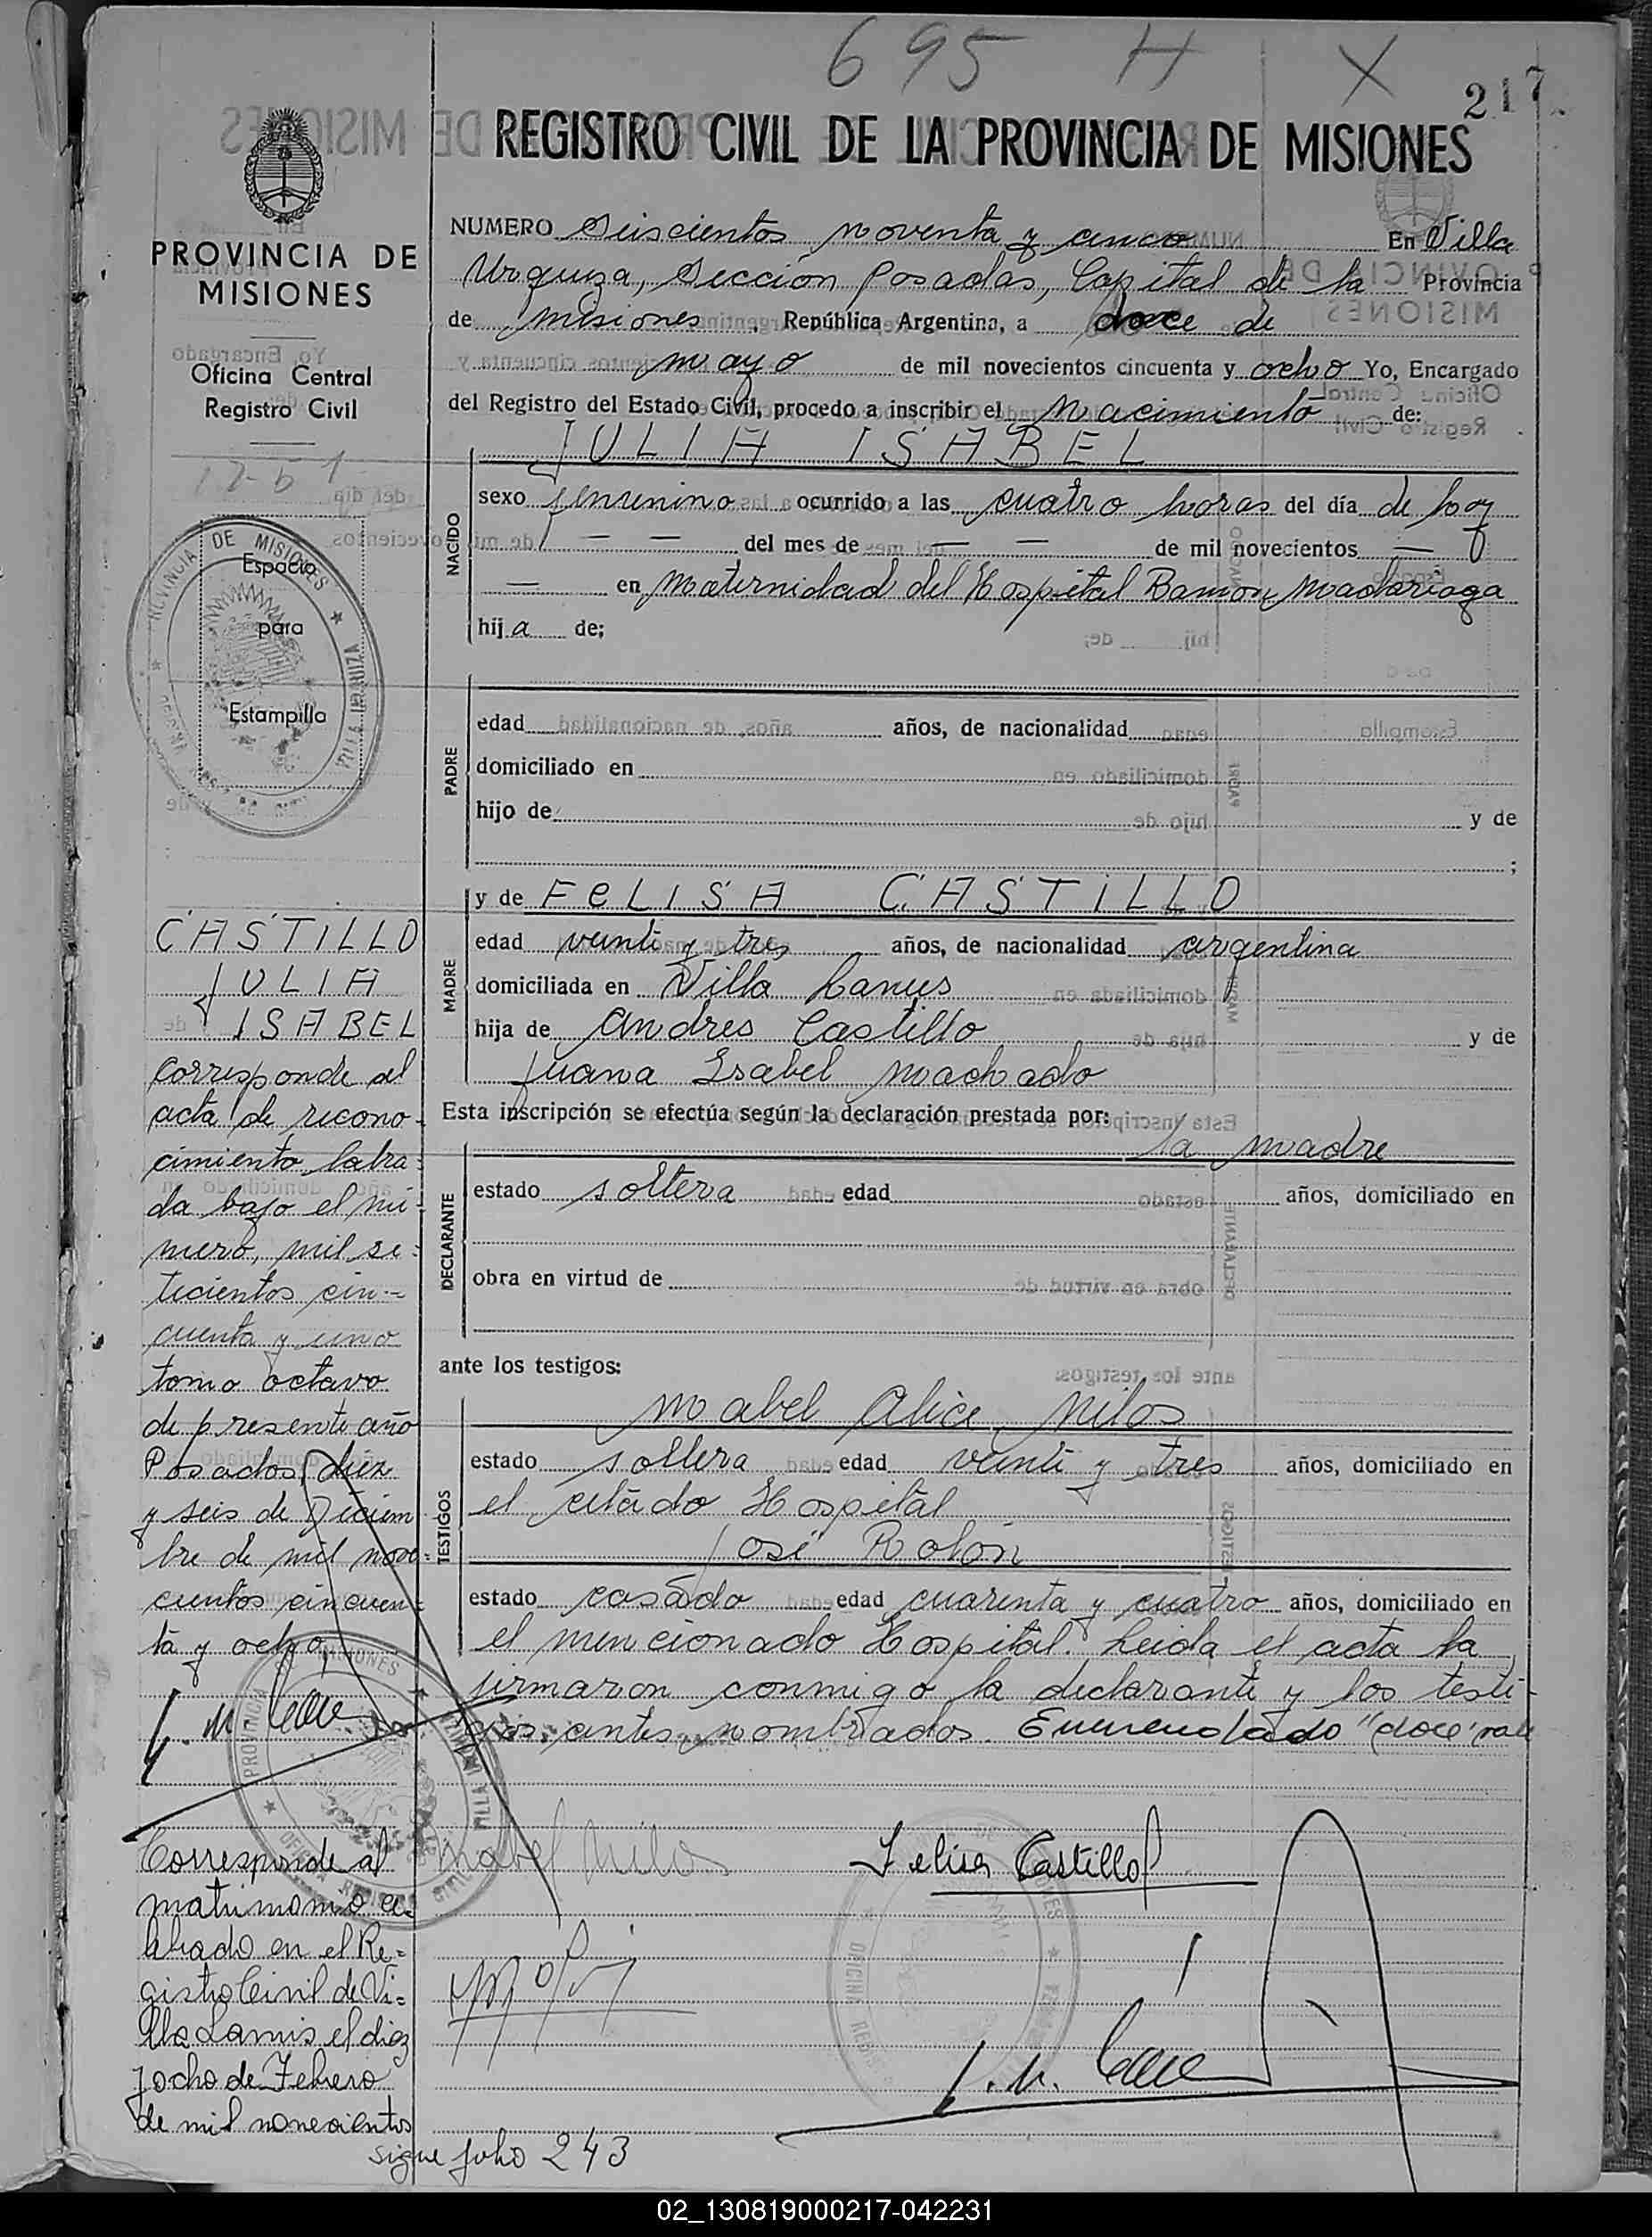 695 H X
217
REGISTRO CIVIL DE LA PROVINCIA DE MISIONES
PROVINCIA DE
MISIONES
Oficina Central
Registro Civil
Espacio
para
Estampilla
NUMERO Seiscientos noventa y cinco En Villa
Urquiza, Sección Posadas, Capital de la Provincia
de Misiones, República Argentina, a doce de
mayo de mil novecientos cincuenta y ocho Yo, Encargado
del Registro del Estado Civil, procedo a inscribir el Nacimiento de:
JULIA ISABEL
NACIDO
sexo femenino ocurrido a las cuatro horas del día de hoy
— — del mes de — — de mil novecientos —
— en Maternidad del Hospital Ramon Madariaga
hija de;
PADRE
edad años, de nacionalidad
domiciliado en
hijo de y de
;
MADRE
y de FELISA CASTILLO
edad veinti y tres años, de nacionalidad argentina
domiciliada en Villa Lanus
hija de Andres Castillo y de
Juana Isabel Machado
Esta inscripción se efectúa según la declaración prestada por:
la madre
DECLARANTE
estado soltera edad años, domiciliado en
obra en virtud de
ante los testigos:
TESTIGOS
Mabel Alice Milos
estado soltera edad veinti y tres años, domiciliado en
el citado Hospital
José Rolón
estado casado edad cuarenta y cuatro años, domiciliado en
el mencionado Hospital. Leida el acta la
firmaron conmigo la declarante y los testi-
gos antes nombrados. Enmendado "doce" vale
CASTILLO
JULIA
ISABEL
Corresponde al
acta de recono-
cimiento labra-
da bajo el nú-
mero, mil se-
tecientos cin-
cuenta y uno
tomo octavo
de presente año
Posadas, diez
y seis de Diciem
bre de mil nove-
cientos cincuen-
ta y ocho
Corresponde al
matrimonio ce-
lebrado en el Re-
gistro Civil de Vi-
lla Lanus el diez
y ocho de Febrero
de mil novecientos
sigue folio 243
Mabel Milos
Felisa Castillo
02_130819000217-042231